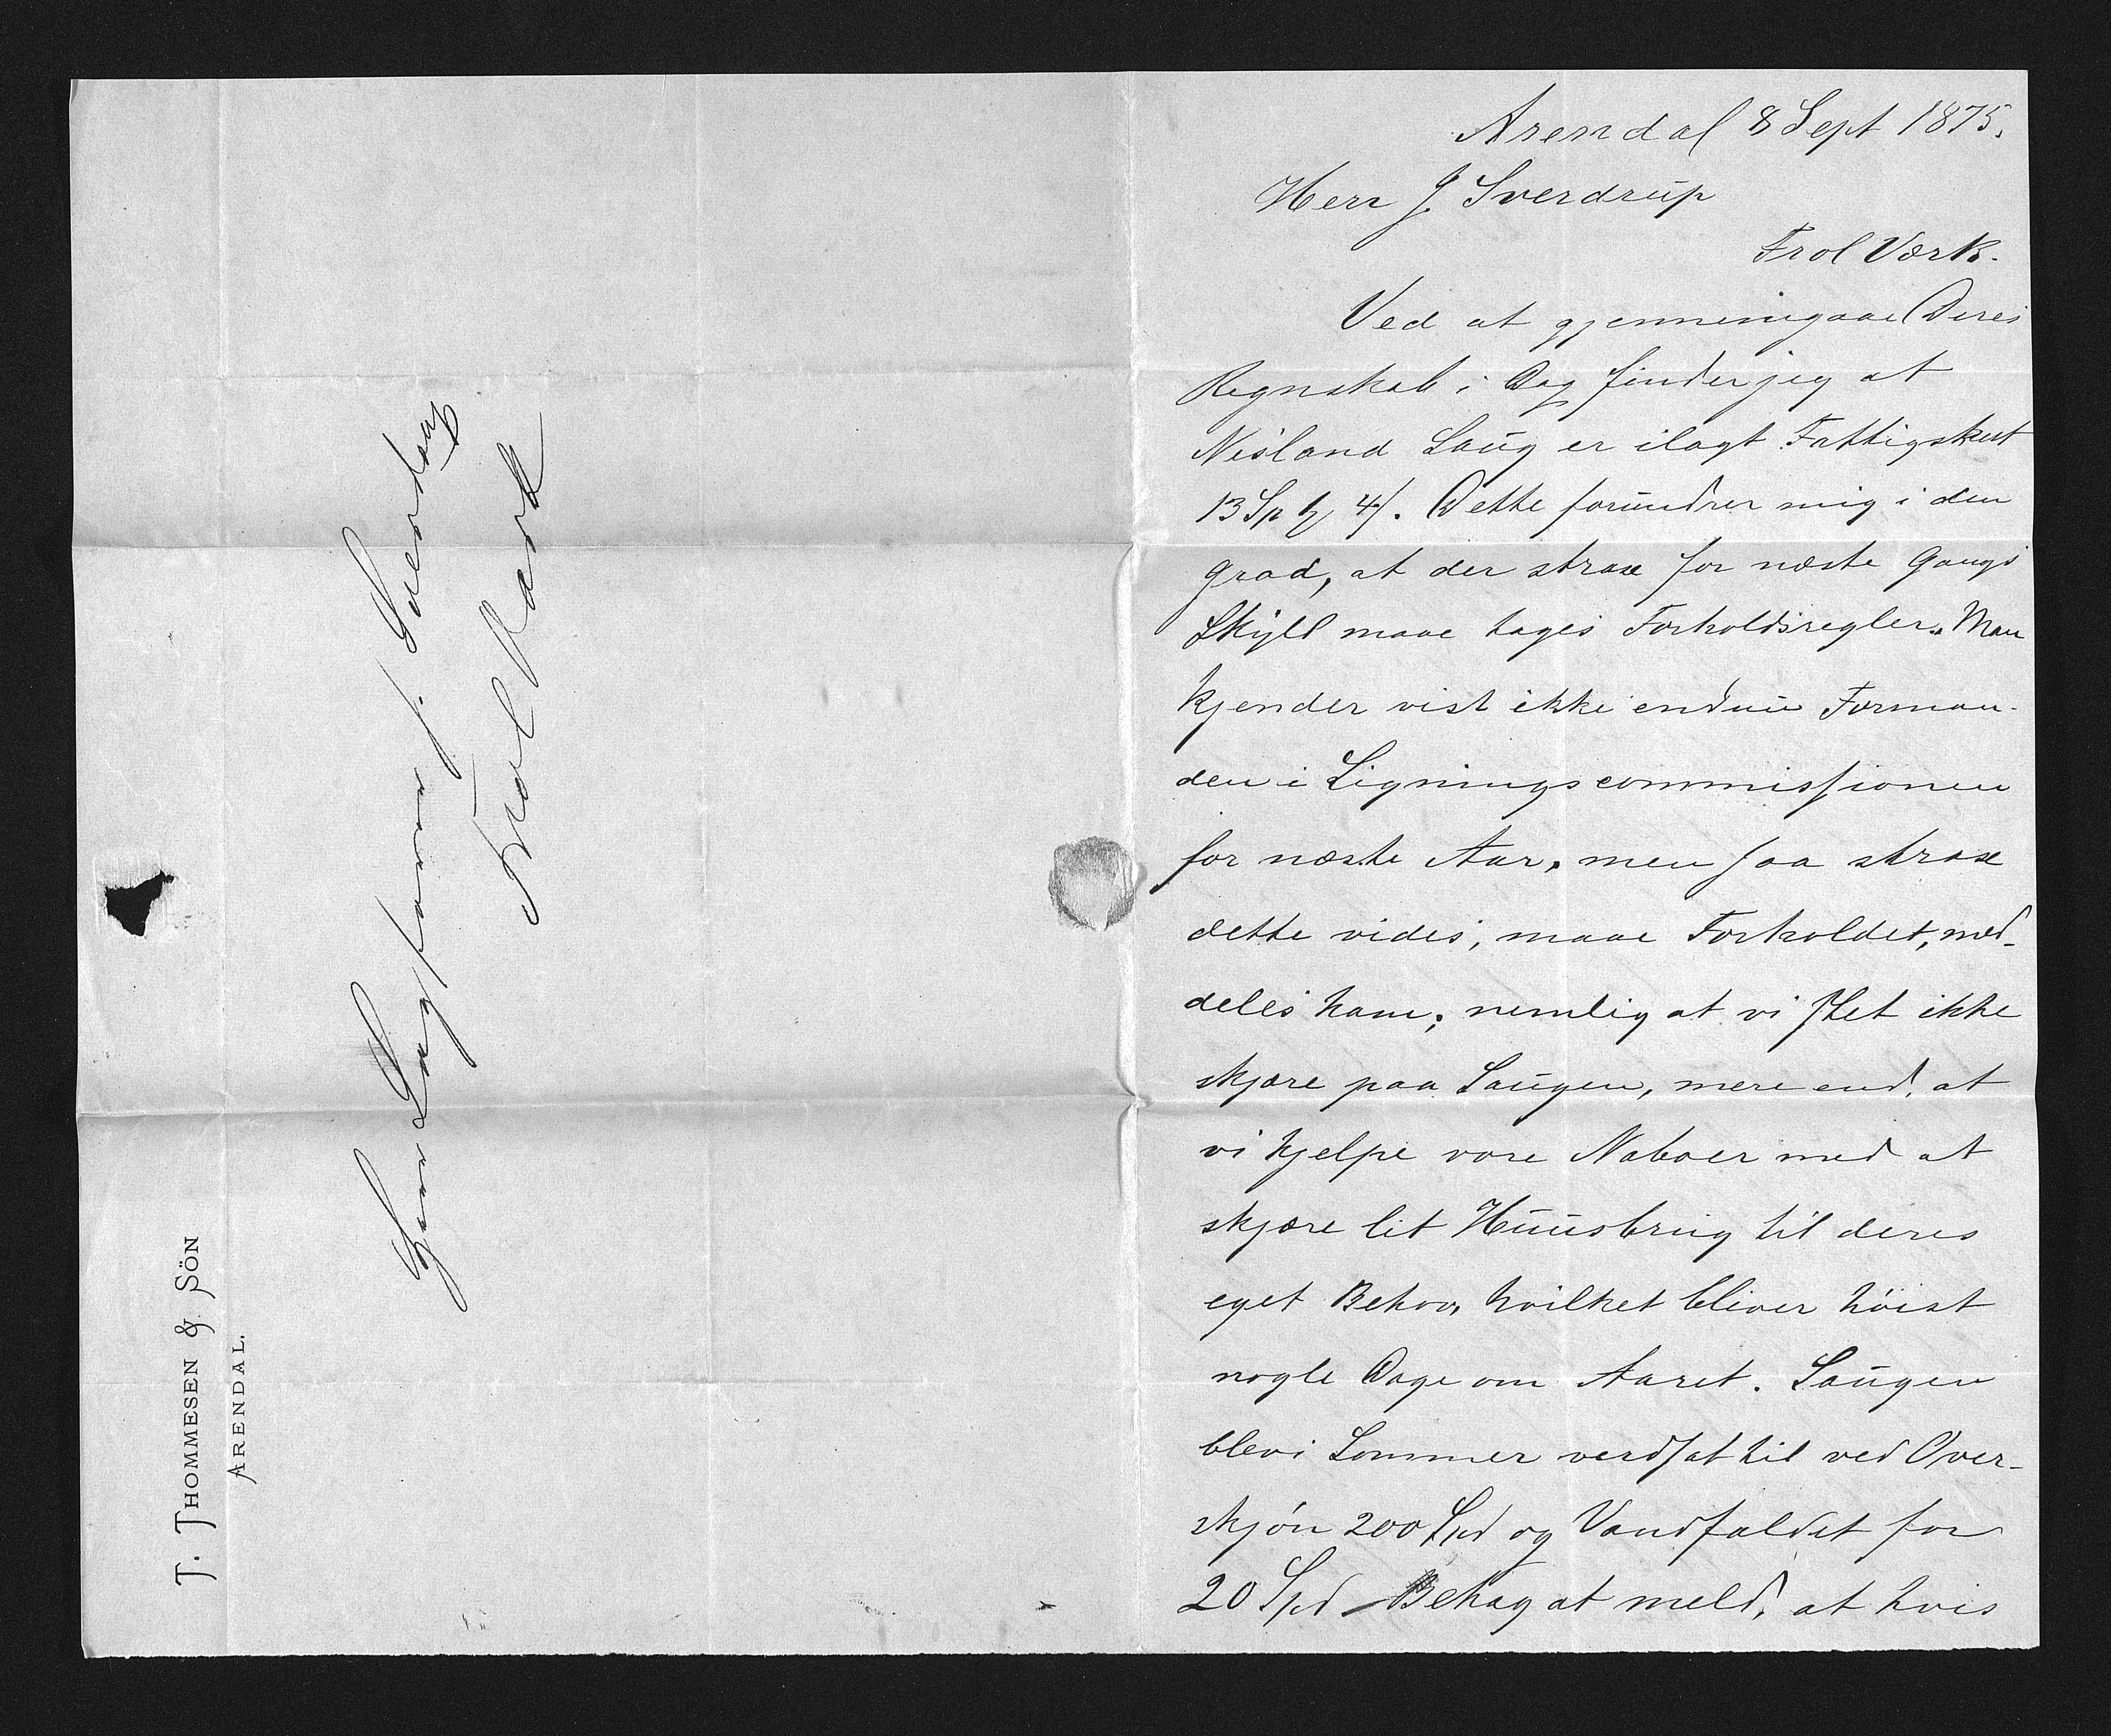 Arendal 8 Sept 1875.
Herr J. Sverdrup
Frol Værk.
Ved at gjennemgaae Deres
Regnskab i Dag finder jeg at
Nisland Saug er ilagt Fattigskat
13 Sp 4/. Dette forundrer mig i den
Grad, at der strax for næste Gangs
Skyld maae tages Forholdsregler. Man
kjender vist ikke endnu Forman-
den i Ligningscommissionen
for næste Aar, men saa strax
dette vides, maae Forholdet, med-
deles ham; nemlig at vi slet ikke
skjære paa Saugen, mere end, at
vi hjelpe vore Naboer med at
skjære lit Huusbrug til deres
eget Behov, hvilket bliver höist
nogle Dage om Aaret. Saugen
blev i Sommer verdsat til ved Over-
skjön 200 Spd og Vandfaldet for
20 Spd – Behag at meld, at hvis
Herr J.
Frol Værk
T. THOMMESEN & SÖN
ARENDAL.